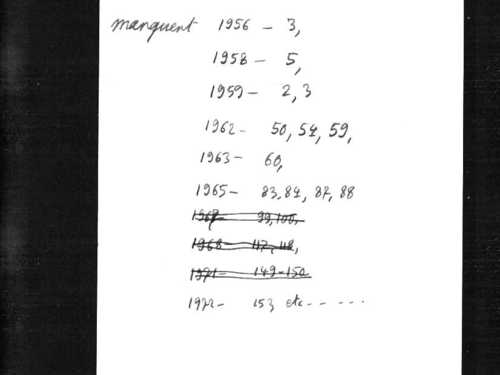 manquent 1956 - 3,
1958 - 5,
1959 - 2, 3
1962 - 50, 54, 59,
1963 - 60,
1965 - 83, 84, 87, 88
1967 - 99, 100,
1968 - 117, 118,
1971 - 149-150
1972 - 153 etc - - - - - -